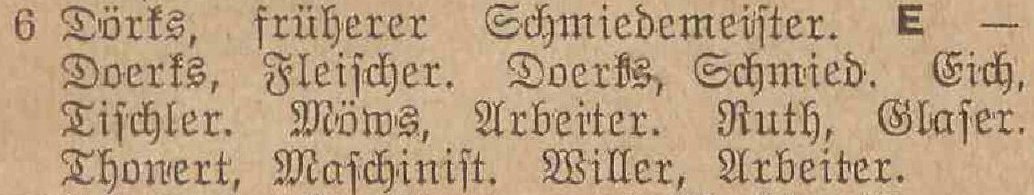 6 Dörks, früherer Schmiedemeister. E —
Doerks, Fleischer. Doerks, Schmied. Eich,
Tischler. Möws, Arbeiter. Ruth, Glaser.
Thonert, Maschinist. Willer, Arbeiter.